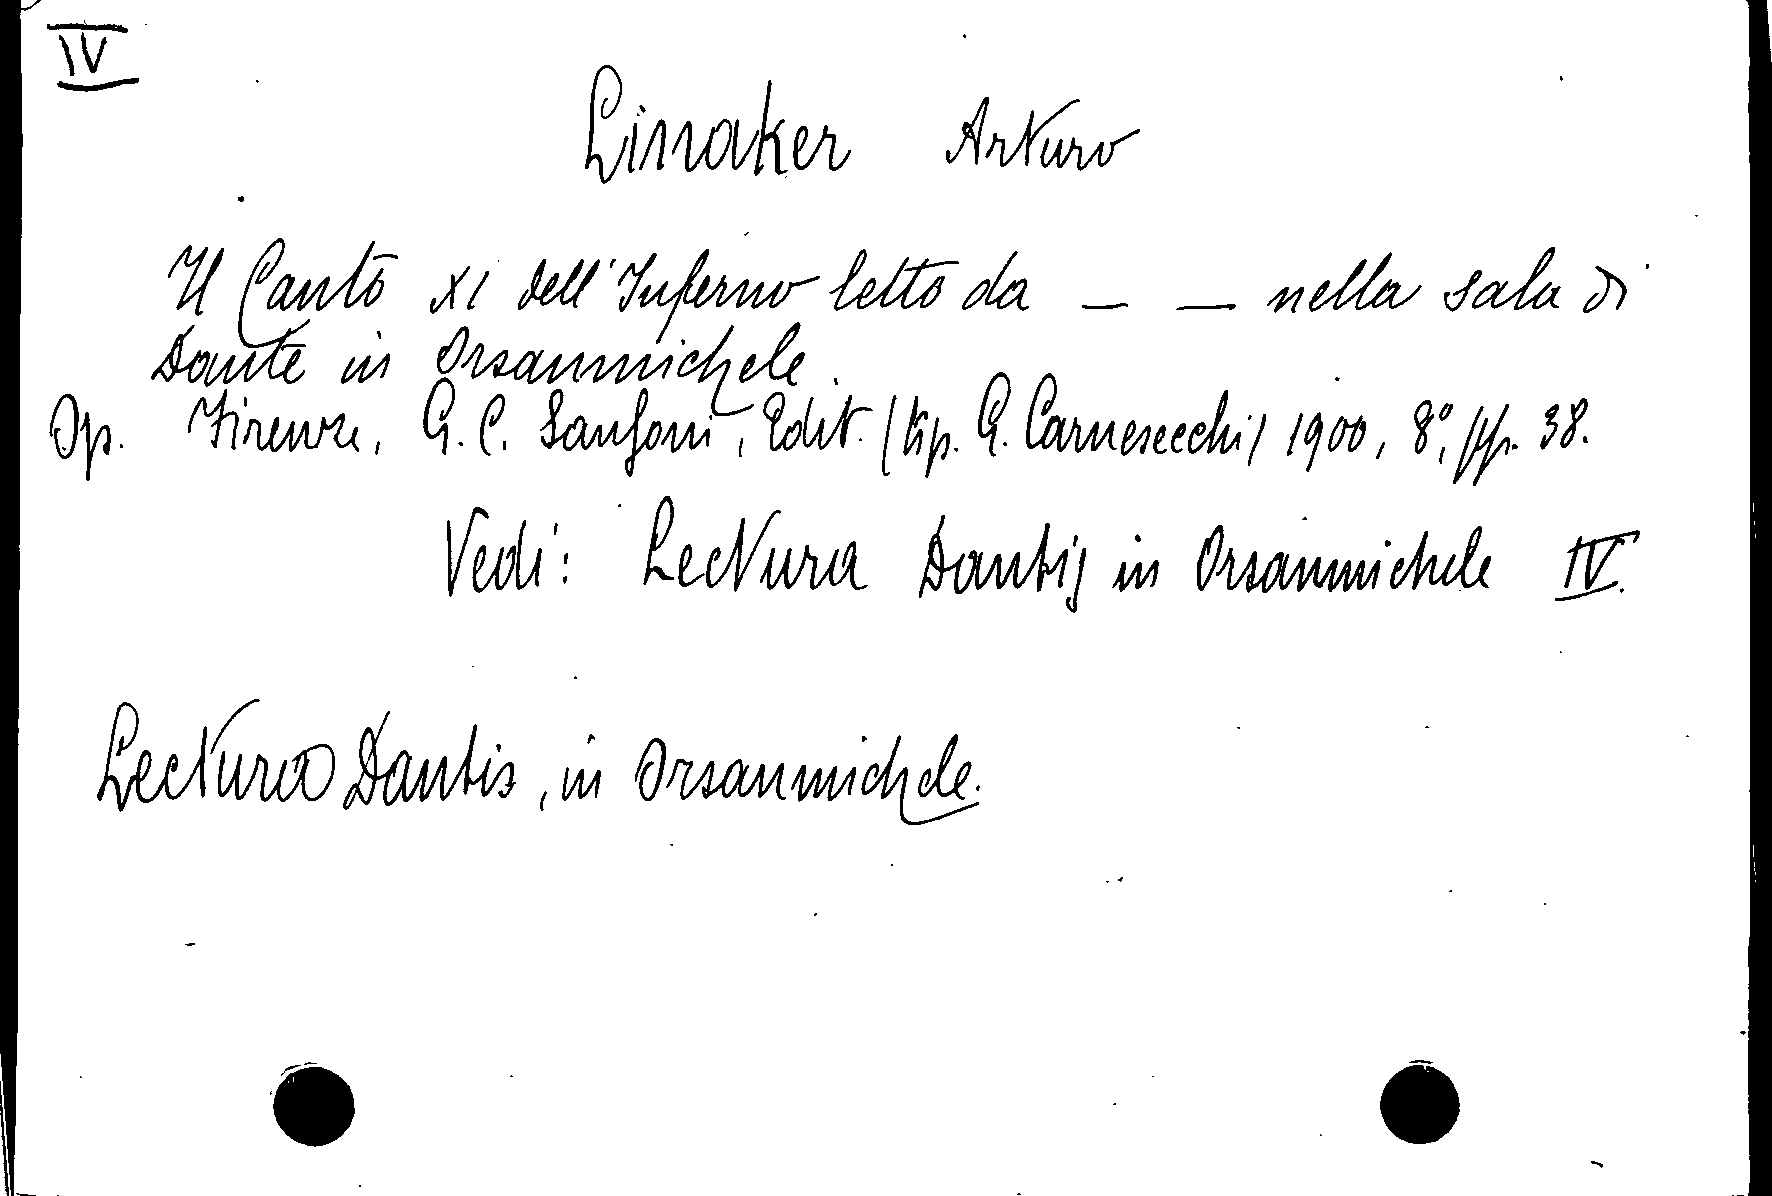 IV
Linaker Arturo
Il Canto XI dell'Inferno letto da _ _ nella sala di
Dante in Orsanmichele.
Op. Firenze, G. C. Sansoni, Edit. (tip. G. Carnesecchi) 1900, 8°, pp. 38.
Vedi: Lectura Dantis in Orsanmichele IV.
Lectura Dantis, in Orsanmichele.